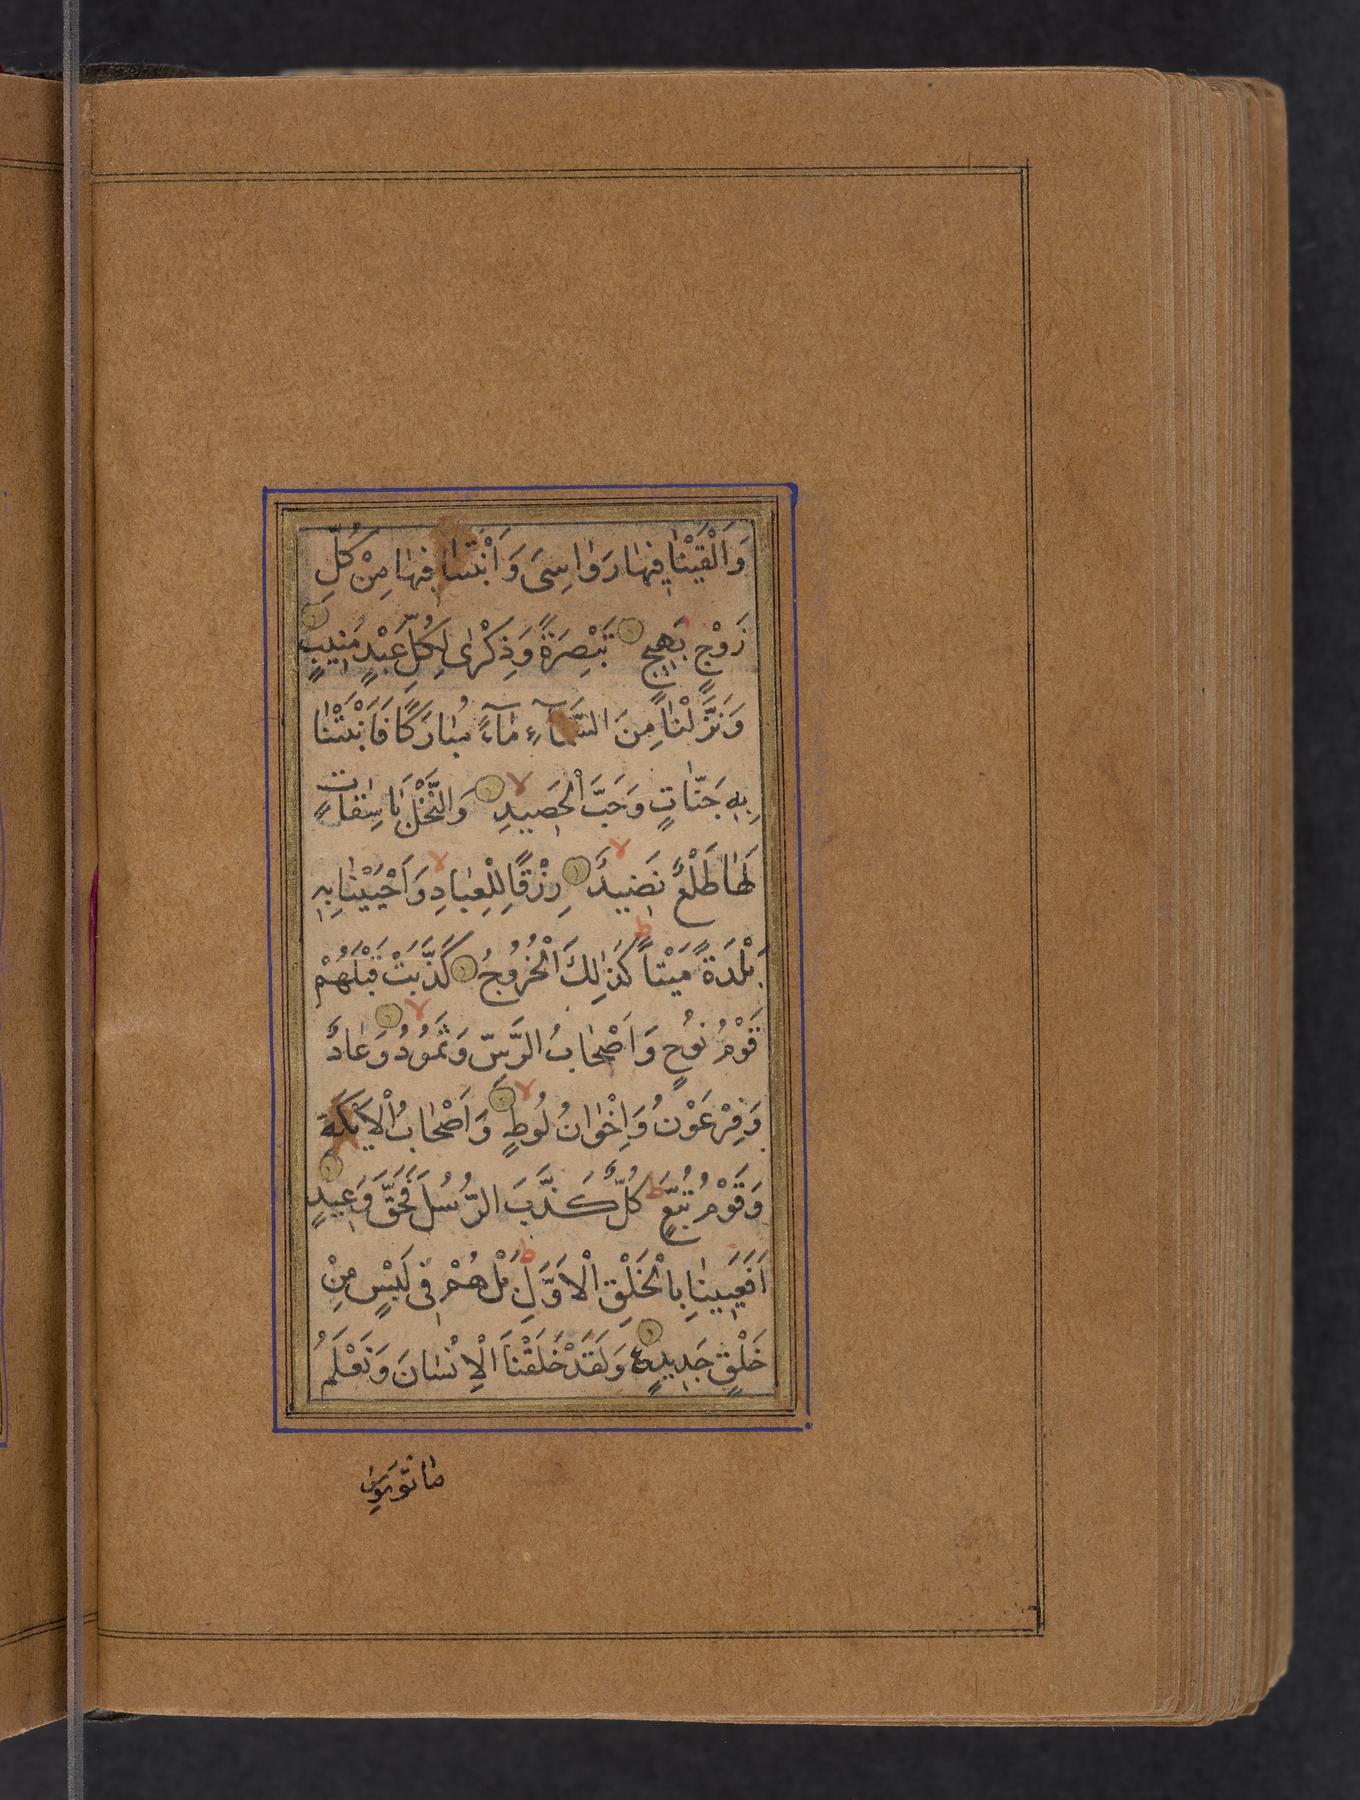 وَاَلْقَيْنٰا فيٖهٰا رَوٰاسِىَ وَاَنْبَتْنٰا فيٖهٰا مِنْ كُلِّ
زَوْجٍ بَهيٖجٍ تَبْصِرَةً وَذِكْرٰى لِكُلِّ عَبْدٍ مُنيٖبٍ
وَنَزَّلْنٰا مِنَ السَّمٰآءِ مٰآءً مُبٰارَكًا فَاَنْبَتْنٰا
بِهٖ جَنّٰاتٍ وَحَبَّ الْحَصيٖدِ لا وَالنَّخْلَ بٰاسِقٰاتٍ
لَهٰا طَلْعٌ نَضيٖدٌ لا رِزْقًا لِلْعِبٰادِ لا وَاَحْيَيْنٰا بِهٖ
بَلْدَةً مَيْتاً ط كَذٰلِكَ الْخُرُوجُ كَذَّبَتْ قَبْلَهُمْ
قَوْمُ نُوحٍ وَاَصْحٰابُ الرَّسِّ وَثَمُودُ لا وَعٰادٌ
وَفِرْعَوْنُ وَاِخْوٰانُ لُوطٍ لا وَاَصْحٰابُ الْاَيْكَةِ
وَقَوْمُ تُبَّعٍ ط كُلٌّ كَذَّبَ الرُّسُلَ فَحَقَّ وَعيٖدِ
اَفَعَيٖينٰا بِالْخَلْقِ الْاَوَّلِ ط بَلْ هُمْ فىٖ لَبْسٍ مِنْ
خَلْقٍ جَديٖدٍ ع وَلَقَدْ خَلَقْنَا الْاِنْسٰانَ وَنَعْلَمُ
مٰا تُوَسْوِسُ